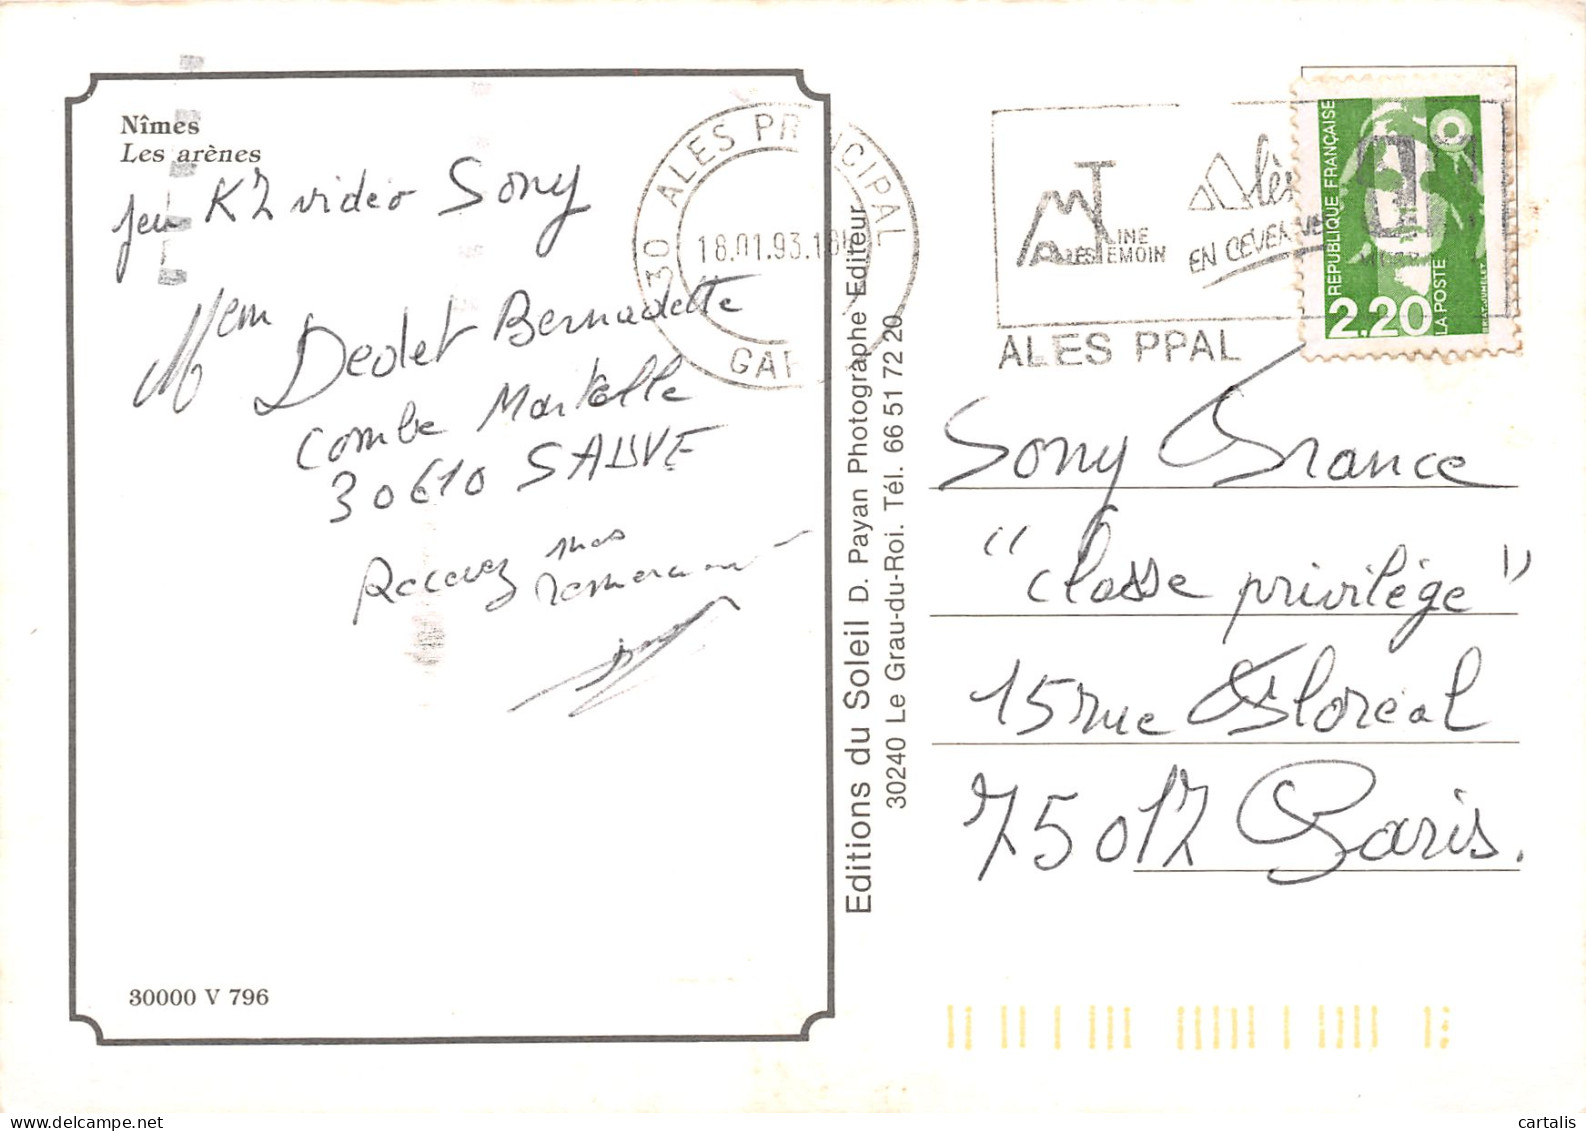 Nîmes
Les arènes
jeu K7 vidéo Sony
Mem Deolet Bernadette
Combe Martelle
30610 SAUVE
Recevez mes
remerciements
30000 V 796
Editions du Soleil D. Payan Photographe Editeur
30240 Le Grau-du-Roi. Tél. 66 51 72 20
30 ALES PRINCIPAL
18.01.93.18H
GARD
MINE
TEMOIN
ALES
Alès
EN CEVENNES
ALES PPAL
REPUBLIQUE FRANÇAISE
2,20
LA POSTE
Sony France
"classe privilège"
15 rue Floréal
75017 Paris.
cartalis